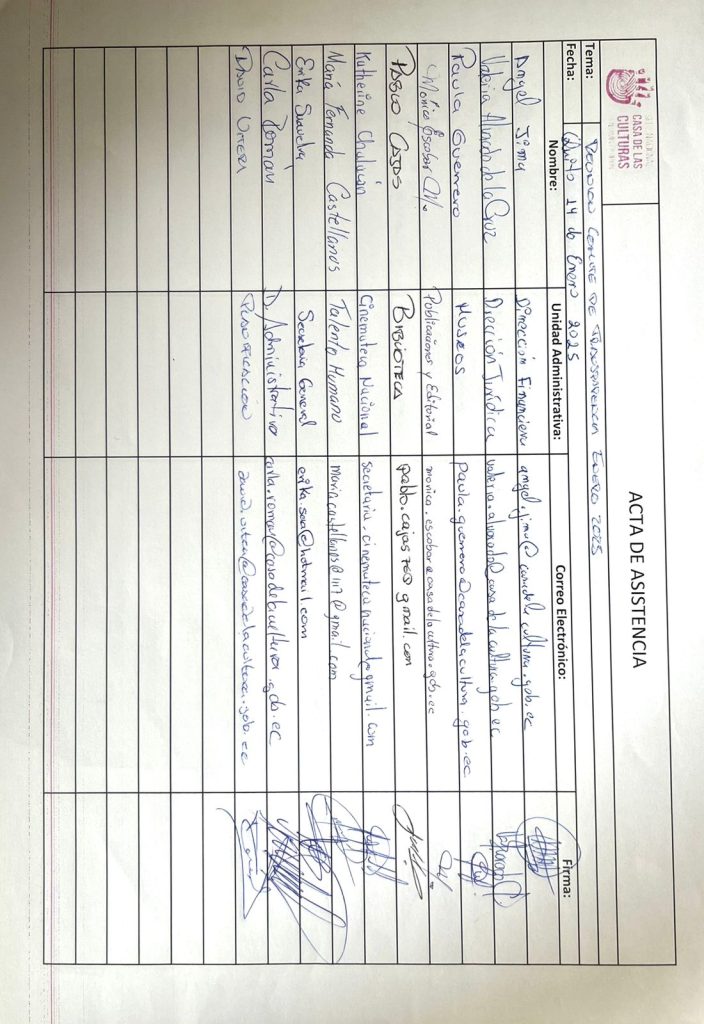 SEDE NACIONAL
CASA DE LAS
CULTURAS
ACTA DE ASISTENCIA
Tema: Reunion Comite de Transparencia Enero 2025
Fecha: Quito 14 de Enero 2025
Nombre: Unidad Administrativa: Correo Electrónico: Firma:
Angel Jima Dirección Financiera angel.jima@casadelacultura.gob.ec
Valeria Alvarado de la Cruz Dirección Jurídica valeria.alvarado@casadelacultura.gob.ec
Paula Guerrero Museos paula.guerrero@casadelacultura.gob.ec
Mónica Escobar Publicaciones y Editorial monica.escobar@casadelacultura.gob.ec
PABLO CAJAS BIBLIOTECA pablo.cajas76@gmail.com
Katherine Cinemateca Nacional secretaria.cinematecanacional@gmail.com
María Fernanda Castellanos Talento Humano
Erika Secretaria General
Carla Román D. Administrativa carla.roman@casadelacultura.gob.ec
David Planificación